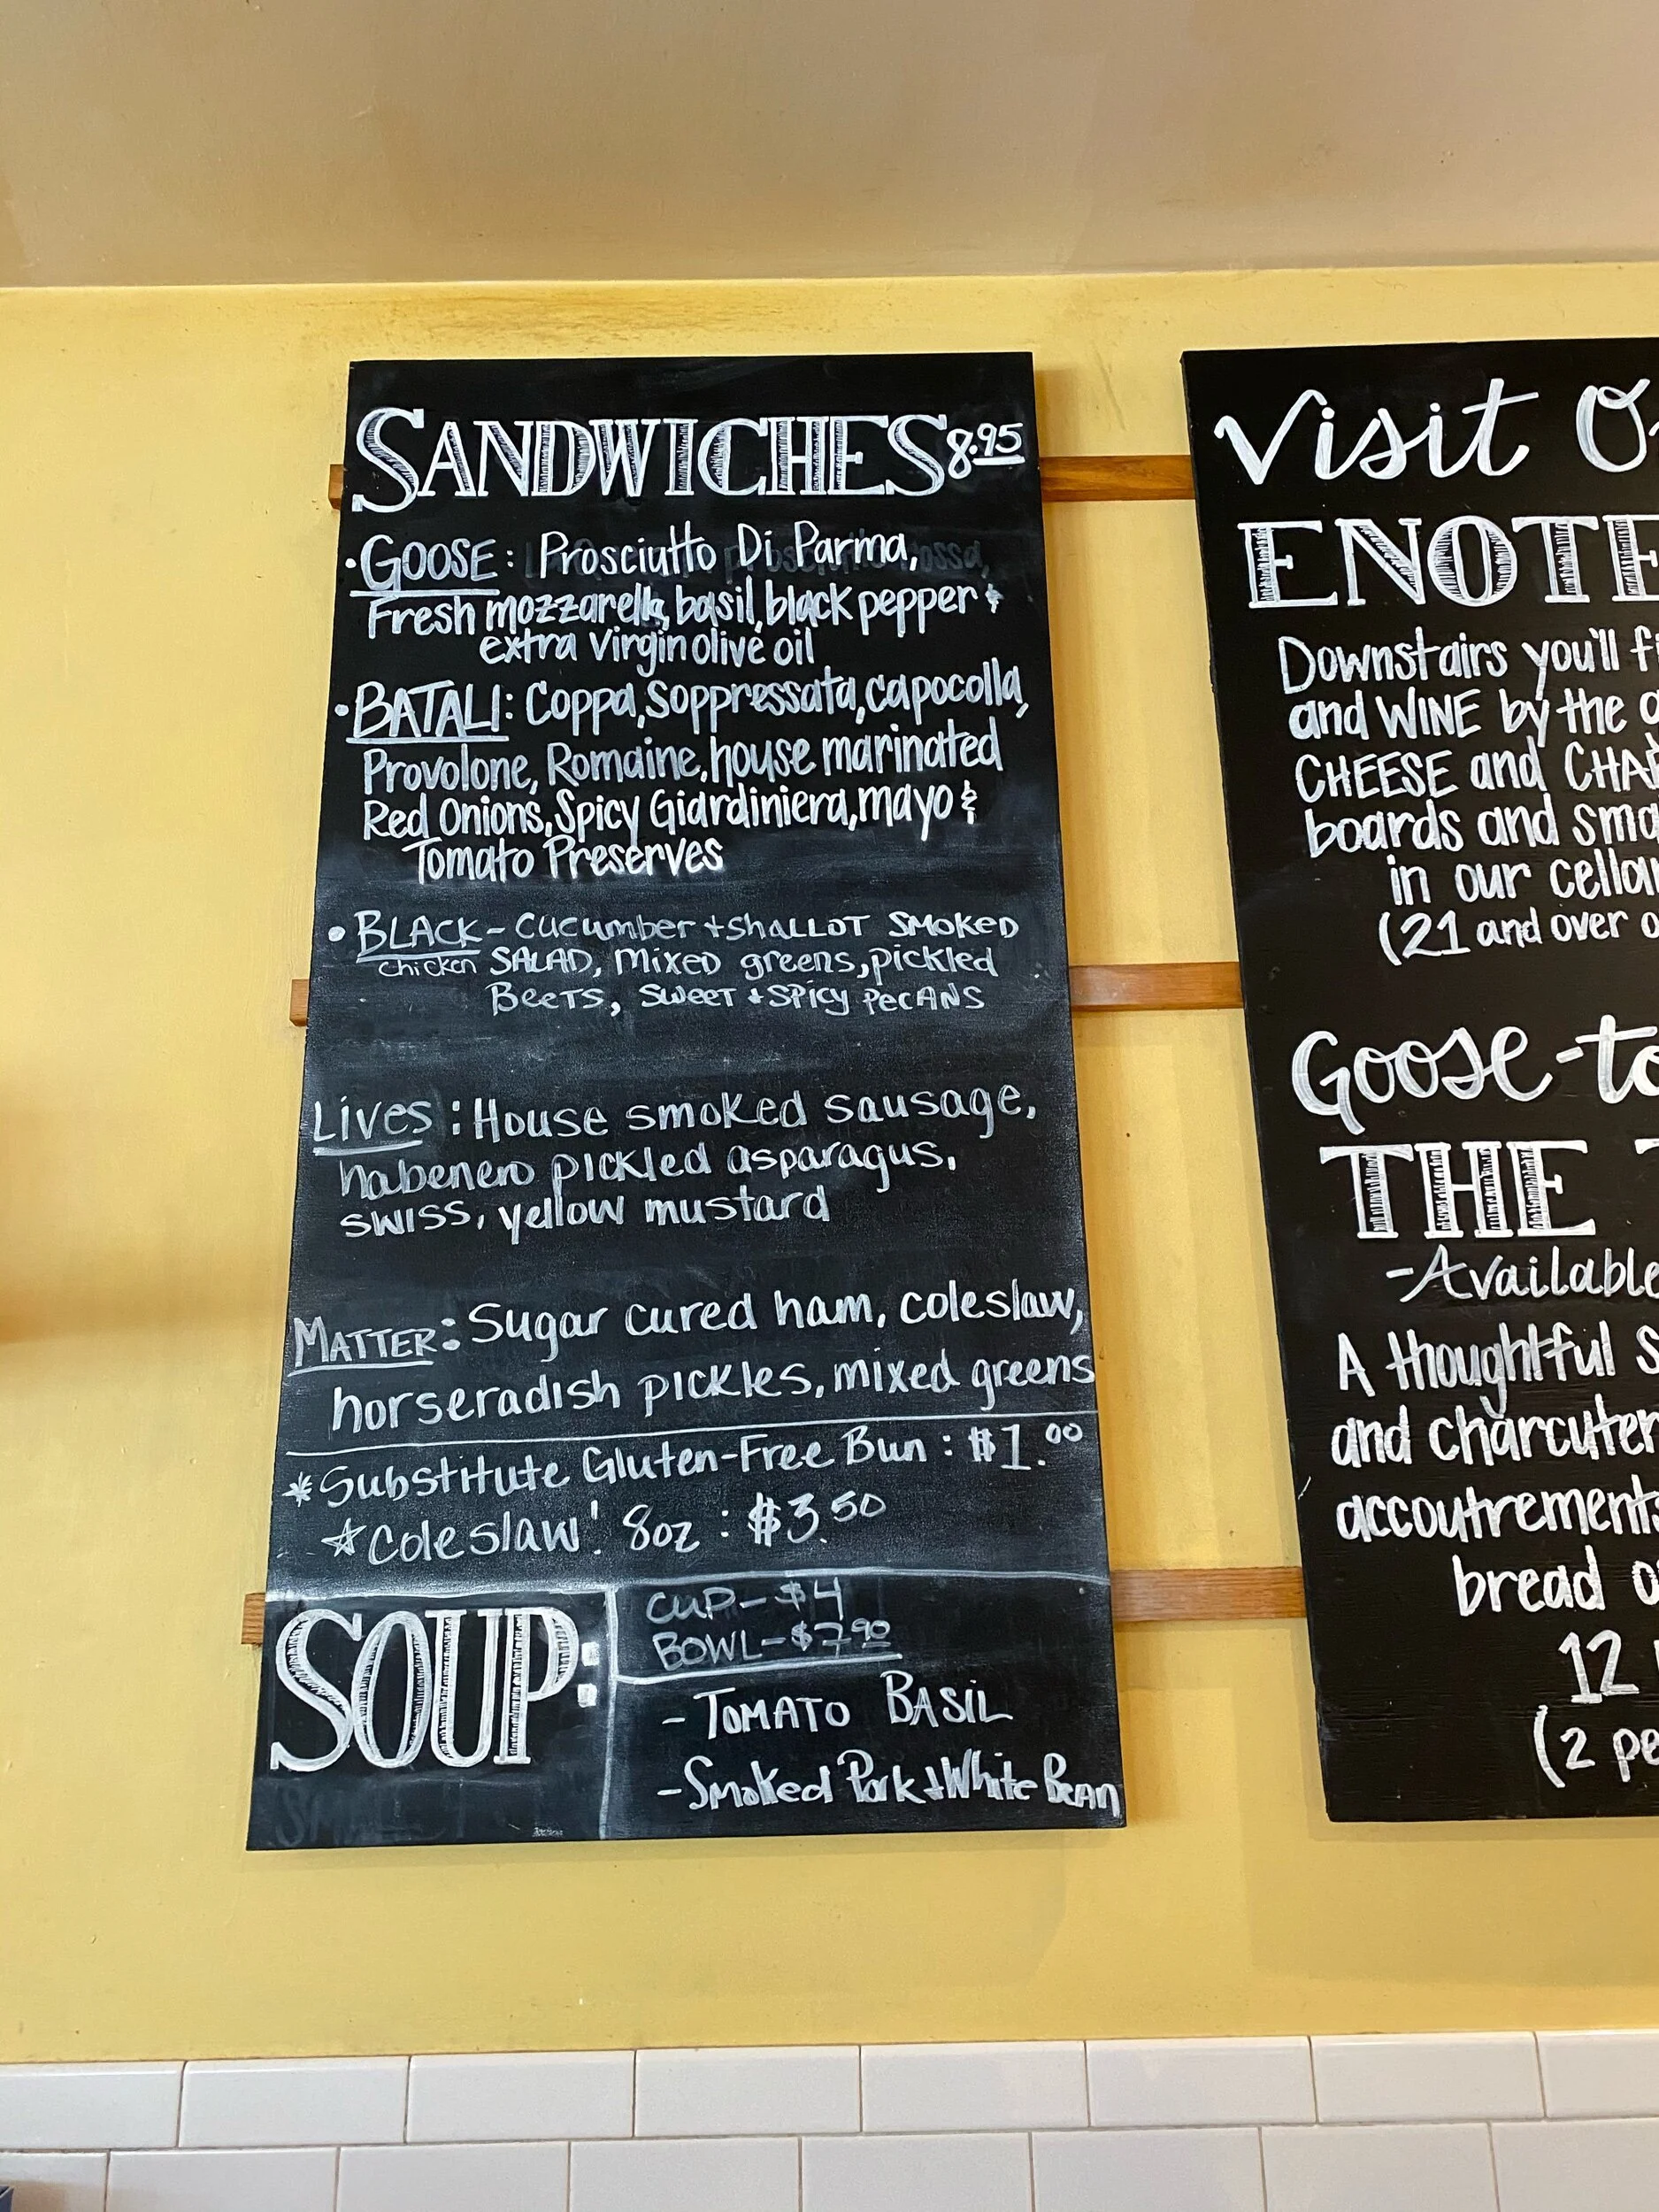 SANDWICHES 8.95
• GOOSE: Prosciutto Di Parma,
Fresh mozzarella, basil, black pepper &
extra virgin olive oil
• BATALI: Coppa, Soppressata, capocolla,
Provolone, Romaine, house marinated
Red Onions, Spicy Giardiniera, mayo &
Tomato Preserves
• BLACK - cucumber + shallot smoked
chicken SALAD, mixed greens, pickled
Beets, sweet + spicy pecans
Lives: House smoked sausage,
habenero pickled asparagus,
swiss, yellow mustard
MATTER: Sugar cured ham, coleslaw,
horseradish pickles, mixed greens
*Substitute Gluten-Free Bun: $1.00
☆Coleslaw! 8oz: $3.50
SOUP:
CUP - $4
BOWL - $7.90
- TOMATO BASIL
- Smoked Pork + White Bean
Visit
ENOTE
Downstairs you'll
and WINE by the
CHEESE and CHA
boards and sma
in our cellar
(21 and over
Goose-to
THE
- Available
A thoughtful s
and charcuter
accoutrements
bread
12
(2 pe